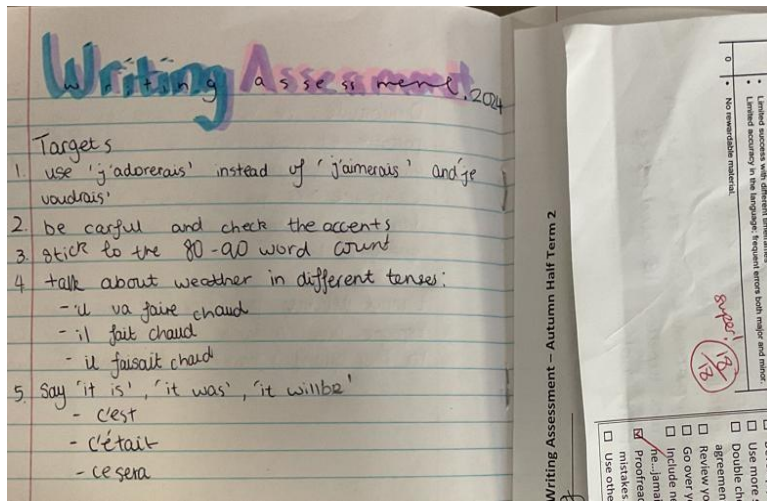 Writing Assessment
writing assessment, 2024
Targets
1. use 'j'adorerais' instead of 'j'aimerais' and 'je
voudrais'
2. be carful and check the accents
3. stick to the 80-90 word count
4 talk about weather in different tenses:
- il va faire chaud
- il fait chaud
- il faisait chaud
5. Say 'it is', 'it was', 'it will be'
- c'est
- c'était
- ce sera
Writing Assessment – Autumn Half Term 2
Limited success with different timeframes
Limited accuracy in the language; frequent errors both major and minor.
0
No rewardable material.
super! 18/18
Use more
Double ch
agreemen
Review v
Go over y
Include ne
ne...jama
Proofread
mistakes
Use othe